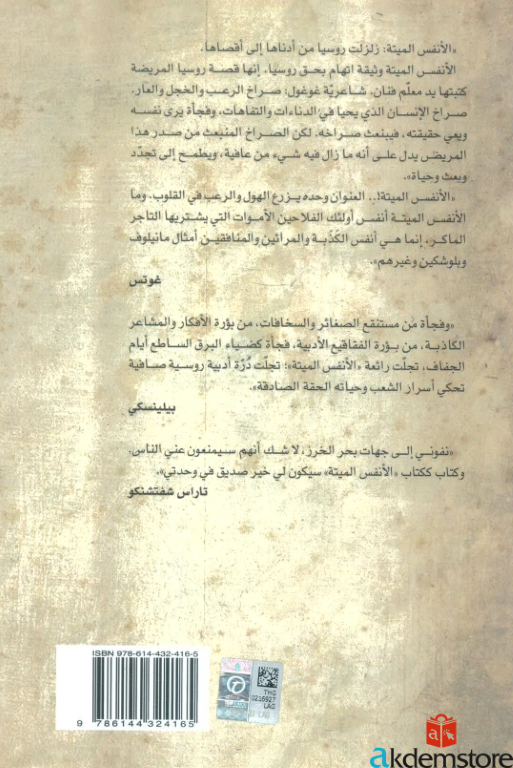 «الأنفس الميتة: زلزلت روسيا من أدناها إلى أقصاها.
الأنفس الميتة وثيقة اتهام بحق روسيا. إنها قصة روسيا المريضة
كتبتها يد معلّم فنان. شاعريّة غوغول: صراخ الرعب والخجل والعار.
صراخ الإنسان الذي يحيا في الدناءات والتفاهات، وفجأة يرى نفسه
ويعي حقيقته، فيبنعث صراخه. لكن الصراخ المنبعث من صدر هذا
المريض يدل على أنه ما زال فيه شيء من عافية، ويطمح إلى تجدّد
وبعث وحياة».
«الأنفس الميتة!.. العنوان وحده يزرع الهول والرعب في القلوب. وما
الأنفس الميتة أنفس أولئك الفلاحين الأموات التي يشتريها التاجر
الماكر، إنما هي أنفس الكَذَبة والمرائين والمنافقين أمثال مانيلوف
وبلوشكين وغيرهم».
غوتس
«وفجأة من مستنقع الصغائر والسخافات، من بؤرة الأفكار والمشاعر
الكاذبة، من بؤرة الفقاقيع الأدبية، فجأة كضياء البرق الساطع أيام
الجفاف، تجلّت رائعة «الأنفس الميتة»؛ تجلّت دُرّة أدبية روسية صافية
تحكي أسرار الشعب وحياته الحقة الصادقة».
بيلينسكي
«نفوني إلى جهات بحر الخرز، لا شك أنهم سيمنعون عني الناس،
وكتاب ككتاب «الأنفس الميتة» سيكون لي خير صديق في وحدتي».
تاراس شفتشنكو
ISBN 978-614-432-416-5
9 786144 324165
THG
0216927
LAG
akdemstore